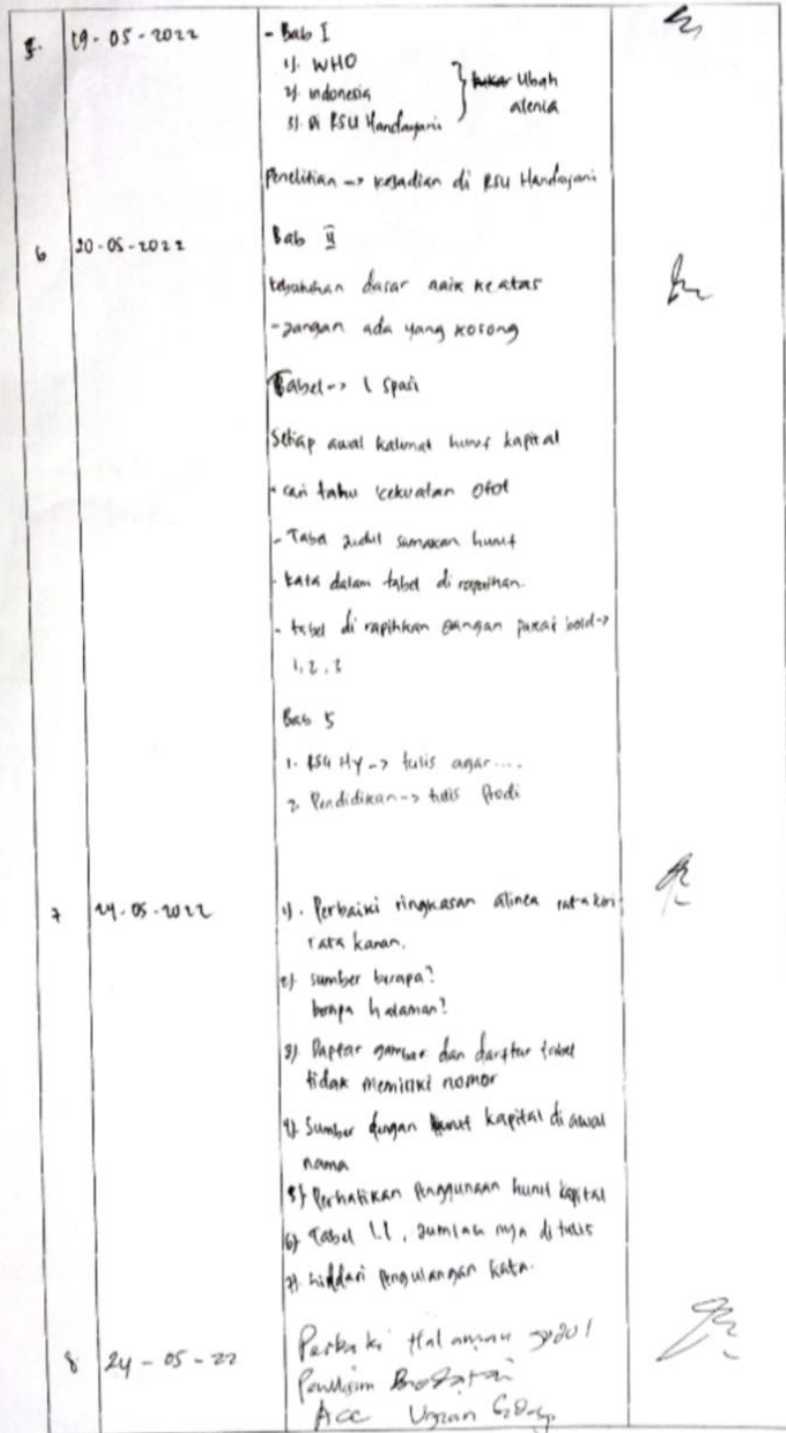 5. 19-05-2022 - Bab I
1). WHO
2). indonesia } Ubah
alenia
3). di RSU Handayani
Penelitian -> kejadian di RSU Handayani
6 20-05-2022 Bab 4
kebutuhan dasar naik keatas
- jangan ada yang kosong
Tabel -> 1 spasi
Setiap awal kalimat huruf kapital
- cari tahu kekuatan otot
- Tabel judul samakan huruf
- kata dalam tabel di rapihkan.
- tabel di rapihkan jangan pakai bold ->
1, 2, 3
Bab 5
1. RSU HY -> tulis agar....
2. Pendidikan -> tulis Prodi
7 24-05-2022 1). Perbaiki ringkasan alinea rata kiri
rata kanan.
2). sumber berapa?
berapa halaman?
3). Daftar gambar dan darftar tabel
tidak memiliki nomor
4). Sumber dengan huruf kapital di awal
nama
5). Perhatikan Penggunaan huruf kapital
6). Tabel 1.1, jumlah nya di tulis
7). hiddari pengulangan kata.
8 24-05-22 Perbaiki Halaman judul
Penulisan
Acc Ujian